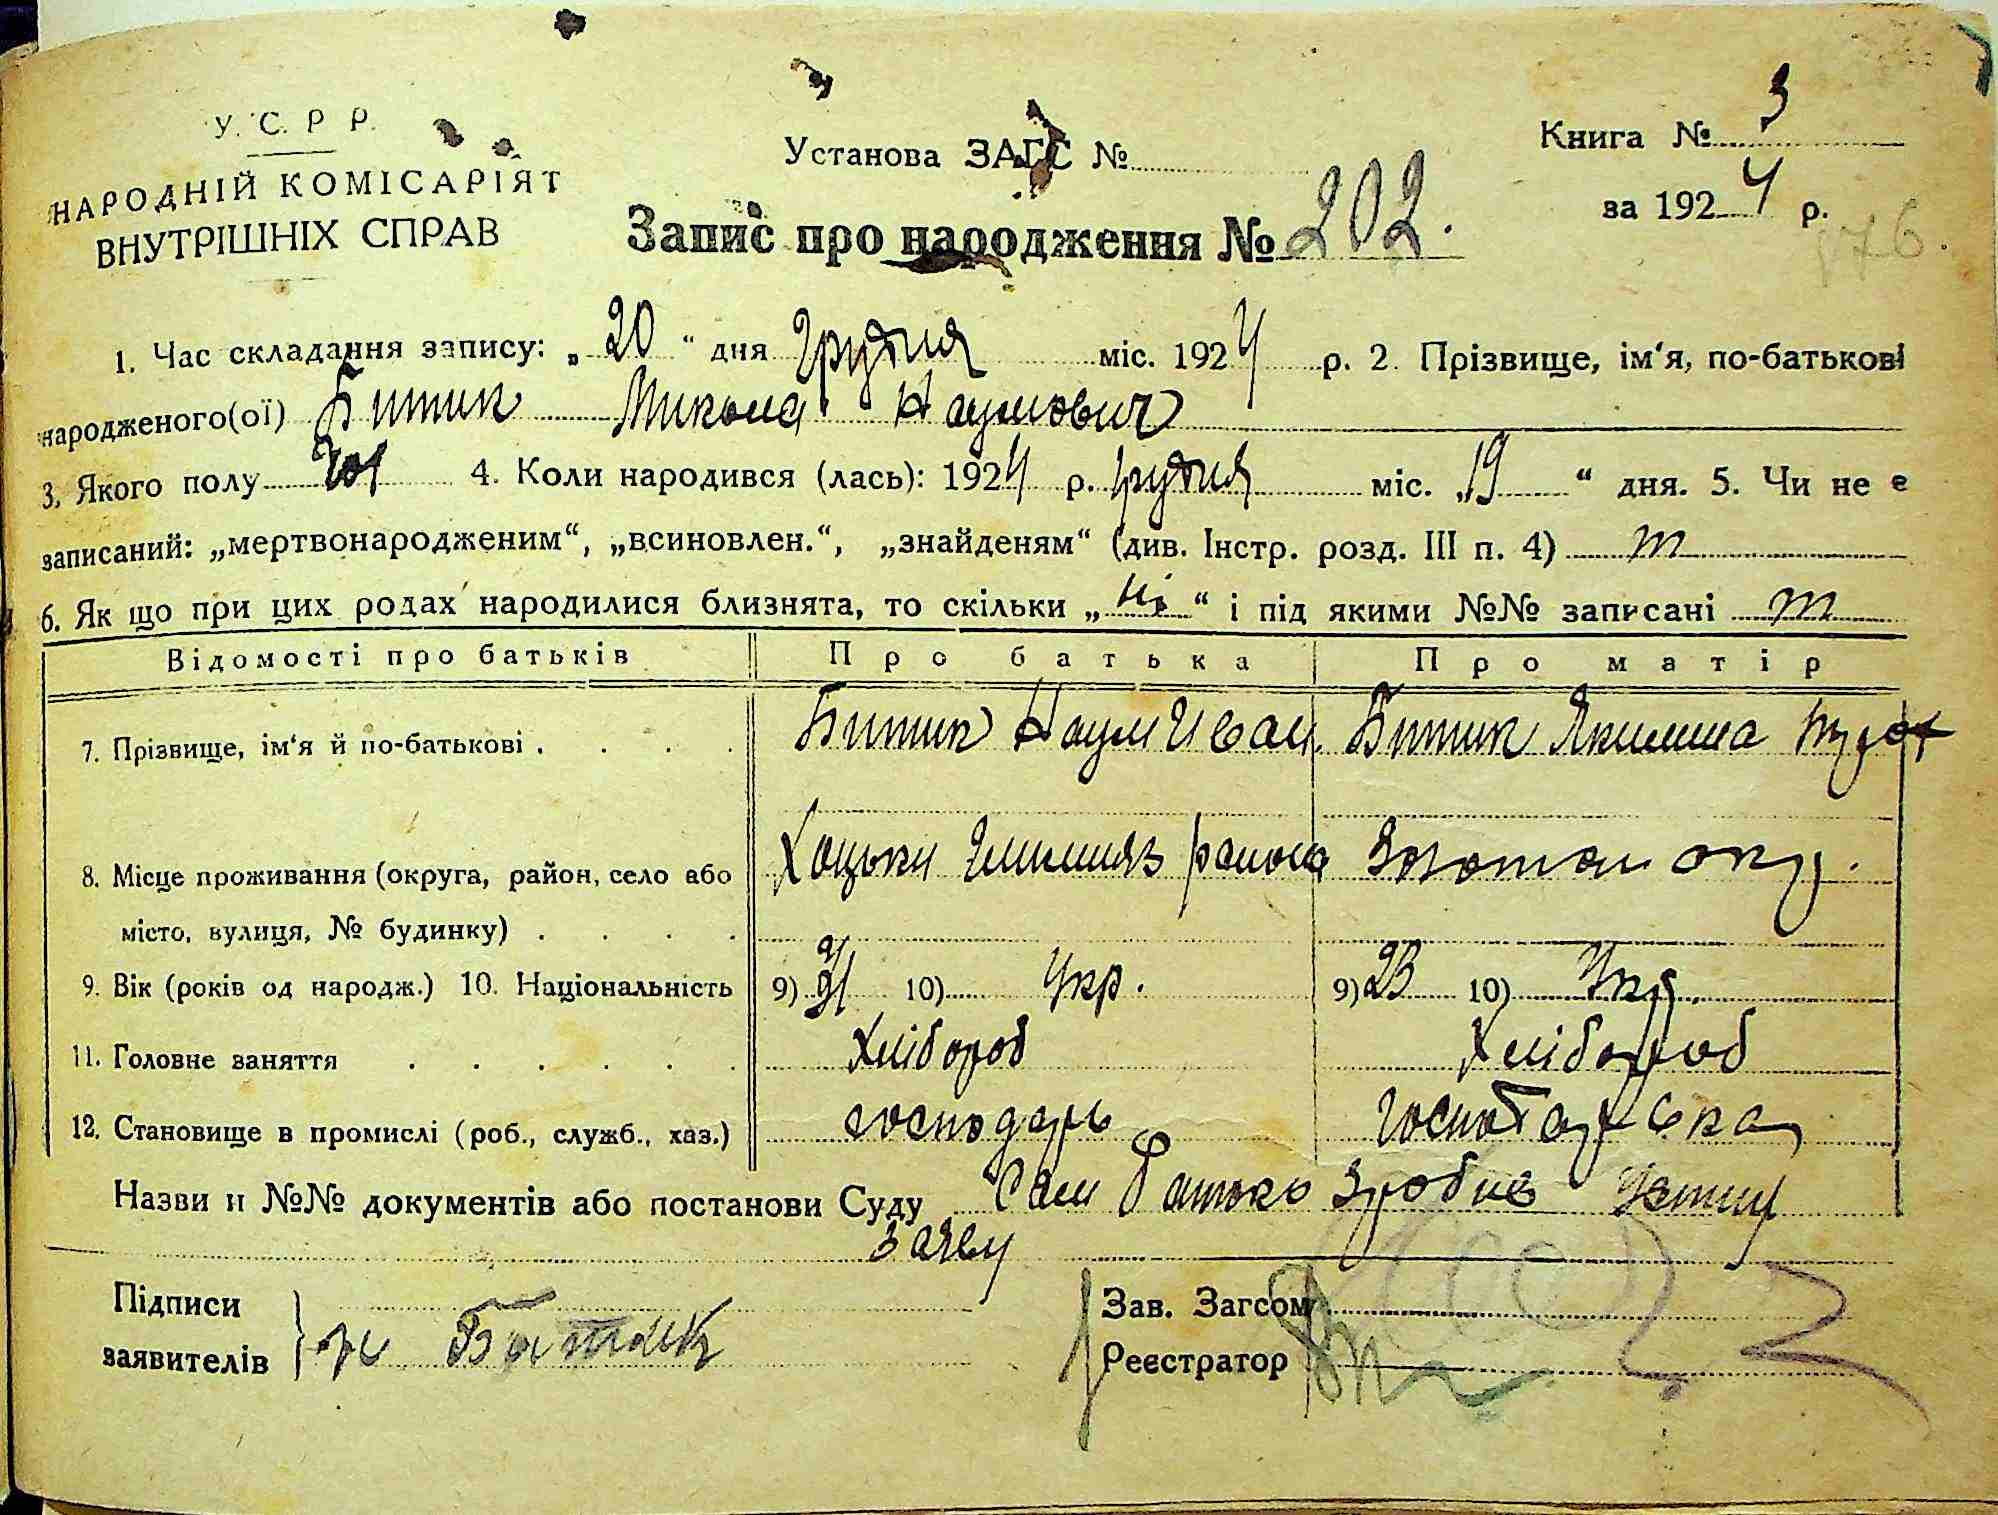 У. С. Р. Р.
НАРОДНІЙ КОМІСАРІЯТ
ВНУТРІШНІХ СПРАВ
Установа ЗАГС №
Книга № 3
за 1924 р.
176.
Запис про народження № 202.
1. Час складання запису: „20“ дня Грудня міс. 1924 р. 2. Прізвище, ім‘я, по-батькові
народженого(ої) Битик Микола Наумович
3, Якого полу чол 4. Коли народився (лась): 1924 р. грудня міс. „19“ дня. 5. Чи не є
записаний: „мертвонародженим“, „всиновлен.“, „знайденям“ (див. Інстр. розд. III п. 4)
6. Як що при цих родах народилися близнята, то скільки „ні“ і під якими №№ записані
Відомості про батьків Про батька Про матір
7. Прізвище, ім‘я й по-батькові . . . . Битик Наум Иван. Битик Якилина
8. Місце проживання (округа, район, село або Хоцьки району Золотон окр.
місто, вулиця, № будинку) . . . .
9. Вік (років од народж.) 10. Національність 9) 21 10) Укр. 9) 23 10) Укр.
11. Головне заняття . . . . . . Хлібороб Хлібороб
12. Становище в промислі (роб., служб., хаз.) господарь господарька
Назви и №№ документів або постанови Суду Сам батько зробив Устну
заяву
Підписи
заявителів Битик
Зав. Загсом
Реєстратор